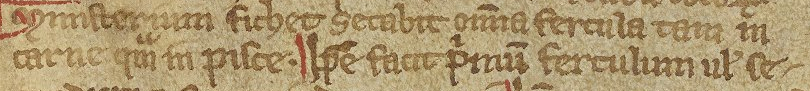 Ministerium fichet secabit om̄ia fercula tam in
carne qᵃm in pisce. Ip̄e facit p̓mum̄ ferculum ul̓ se-